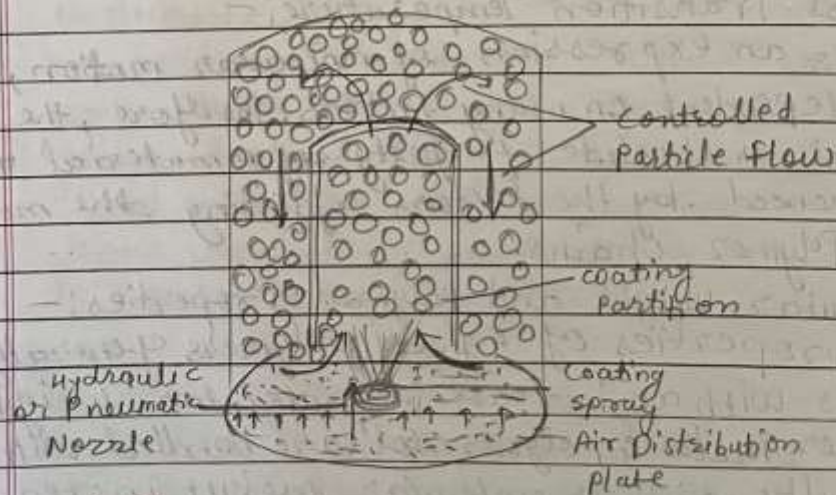 Controlled
Particle flow
coating
Partition
Hydraulic
or Pneumatic
Nozzle
Coating
Spray
Air Distribution
plate